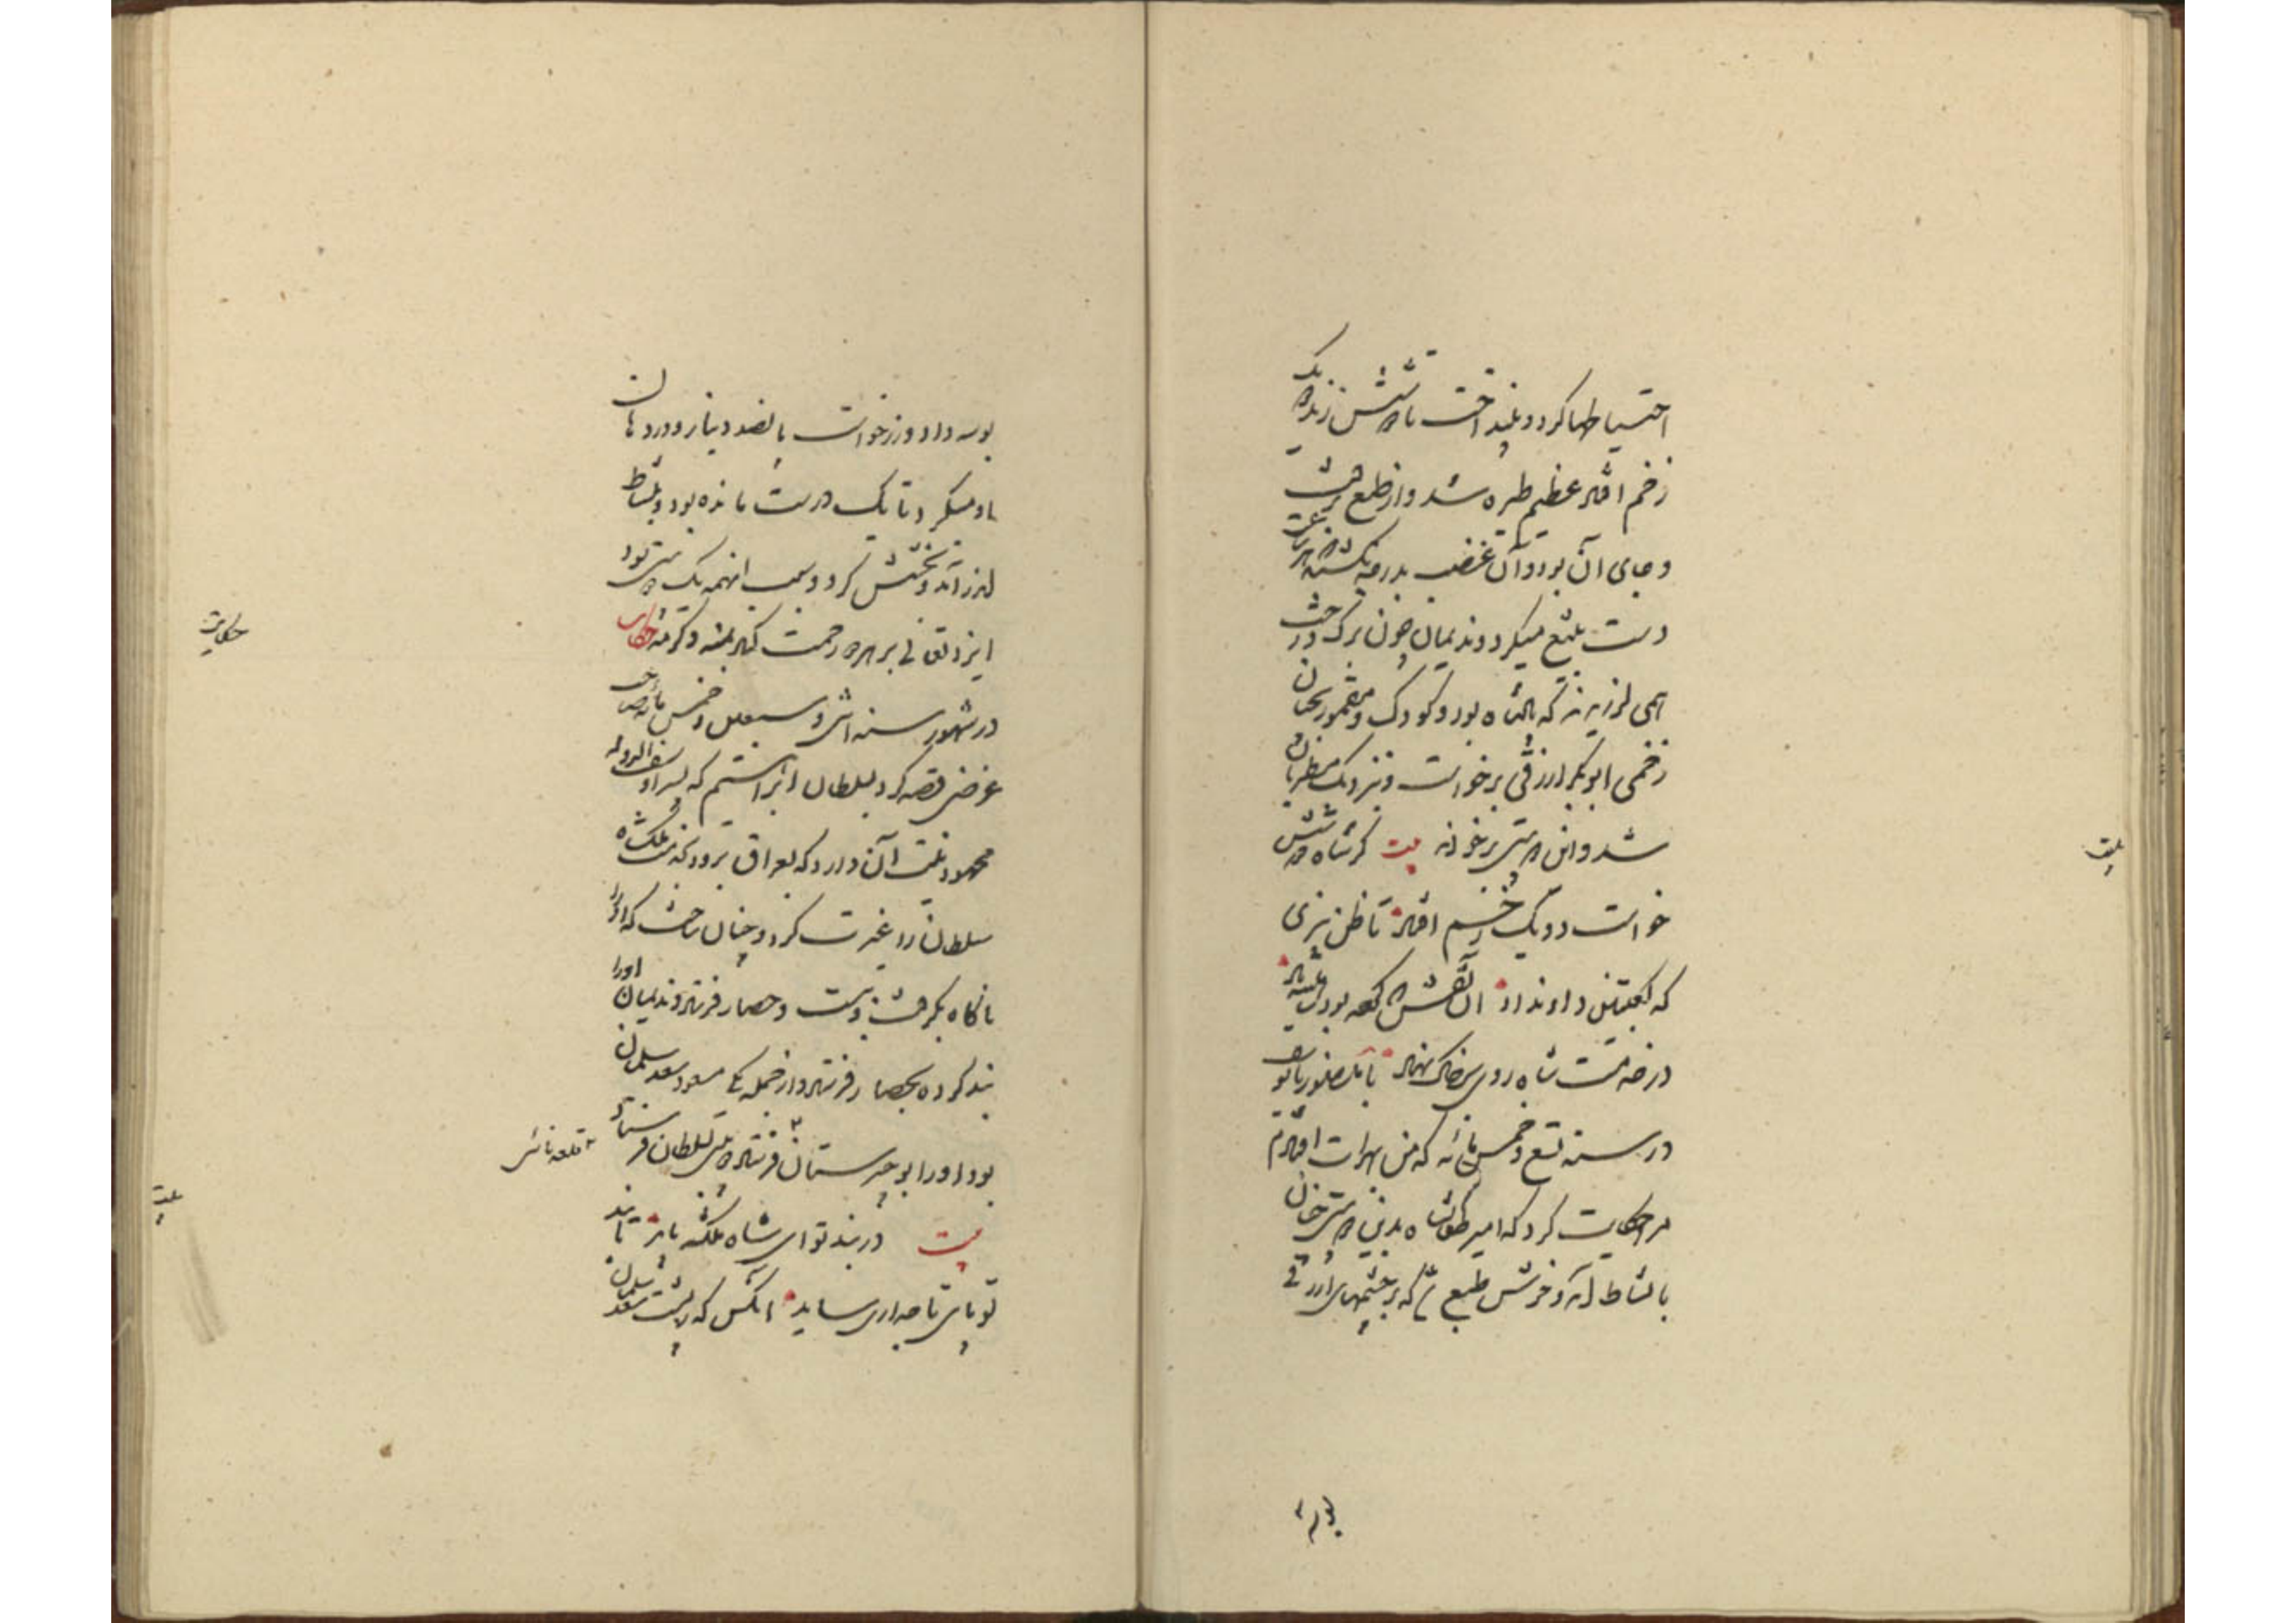 احتیاطها کرد و بینداخت تا شش زند یک
زخم افتاد عظیم طیره شد و از طبع برفت
و جای آن بود و آن غضب بدرجه کشید که هر ساعت
دست بتیغ میکرد و ندیمان چون برگ درخت
همی لرزیدند که پادشاه بود و کودک و مقمور بچنان
زخمی ابوبکر ازرقی برخواست و نزدیک مطربان
شد و این دو بیتی برخواند بیت گر شاه دو شش
خواست دو یک زخم افتاد تا ظن نبری
که کعبتین داد نداد آن نقش که کرده بود
در خدمت شاه روی بر خاک نهاد با منصور بایوسف
در سنه تسع و خمسمائه که من بهرات افتادم
مرا حکایت کرد که امیر طغانشاه بدین دو بیتی چنان
با نشاط آمد و خوش طبع که بر چشمهای ازرقی
بوسه
حکایت
بوسه داد و زر خواست پانصد دینار و در دهان
او میکرد تا یک درست مانده بود و بنشاط
اندر آمد و بخشش کرد و سبب اینهمه یک دو بیتی بود
ایزد تعالی بر هر دو رحمت کناد بمنه و کرمه حکایت
در شهور سنه اثنی و سبعین و خمسمائه صاحب
غرضی قصه کرد بسلطان ابراهیم که پسر او سیف الدوله
محمود نیت آن دارد که بعراق برود بخدمت ملکشاه
سلطان را غیرت کرد و چنان ساخت که او را
ناگاه بگرفت و ببست و حصار فرستاد و ندیمان او را
بند کرده بحصار فرستاد و از جمله یکی مسعود سعد سلمان
بود او را بوجیرستان فرستاد دو بیتی بسلطان فرستاد
۳ قلعه نائی
بیت در بند تو ای شاه ملکشه باید تا بند
تو پای تاجداری ساید آنکس که ز پشت سعد سلمان